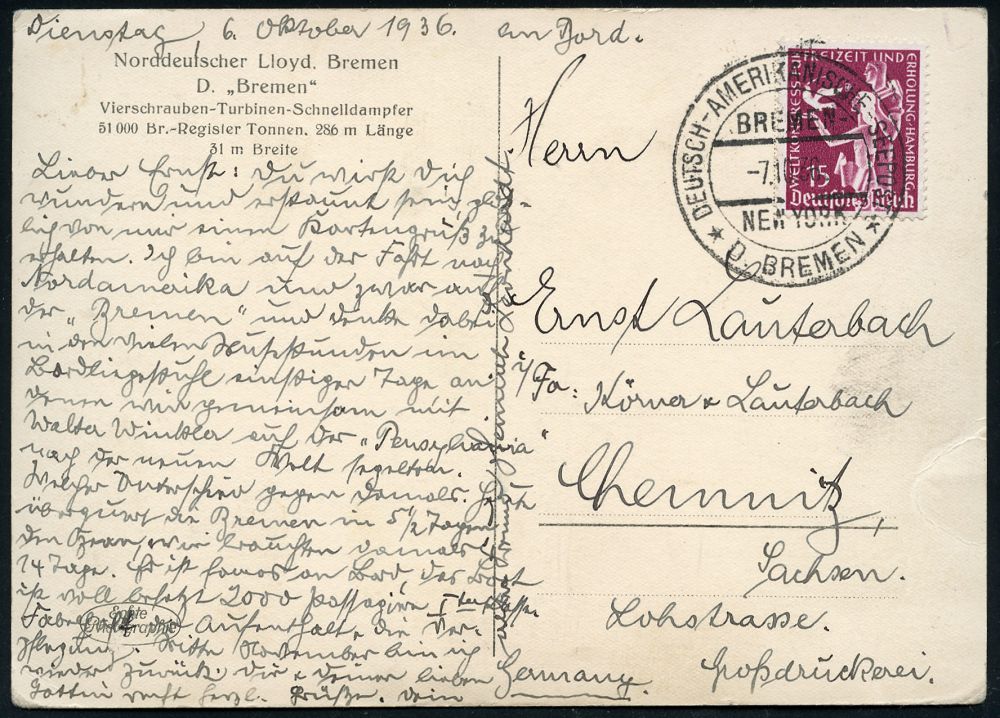 Dienstag, 6. Oktober 1936. an Bord.
Norddeutscher Lloyd, Bremen
D. „Bremen"
Vierschrauben-Turbinen-Schnelldampfer
51 000 Br.-Register Tonnen. 286 m Länge
31 m Breite
Lieber Ernst: Du wirst Dich
wundern und erstaunt sein plötz-
lich von mir einen Kartengruß zu
erhalten. Ich bin auf der Fahrt nach
Nordamerika und zwar auf
der „Bremen" und denke dabei
in den vielen Mußestunden im
Bordliegestuhl einstiger Tage an
denen wir gemeinsam mit
Walter Winkler auf der „Pensylvania"
nach der neuen Welt segelten.
Welcher Unterschied gegen damals.
überquert die Bremen in 5 1/2 Tagen
den Ozean, wir brauchten damals
14 Tage. Es ist famos an Bord, das Boot
ist voll besetzt 2000 Passagiere
Fabelhaft der Aufenthalt & die Ver-
pflegung. Mitte November bin ich
wieder zurück. Dir & Deiner lieben
Gattin recht herzl. Grüße. Dein
Echte
Photographie
DEUTSCH-AMERIKANISCHE SEEPOST
BREMEN-
-7.10.36
NEW YORK
★ D. BREMEN ★
WELTKONGRESS FÜR FREIZEIT UND ERHOLUNG · HAMBURG
15
Deutsches Reich
Herrn
Ernst Lauterbach
i/Fa: Körner & Lauterbach
Chemnitz,
Sachsen.
Lohstrasse.
Großdruckerei.
Germany.